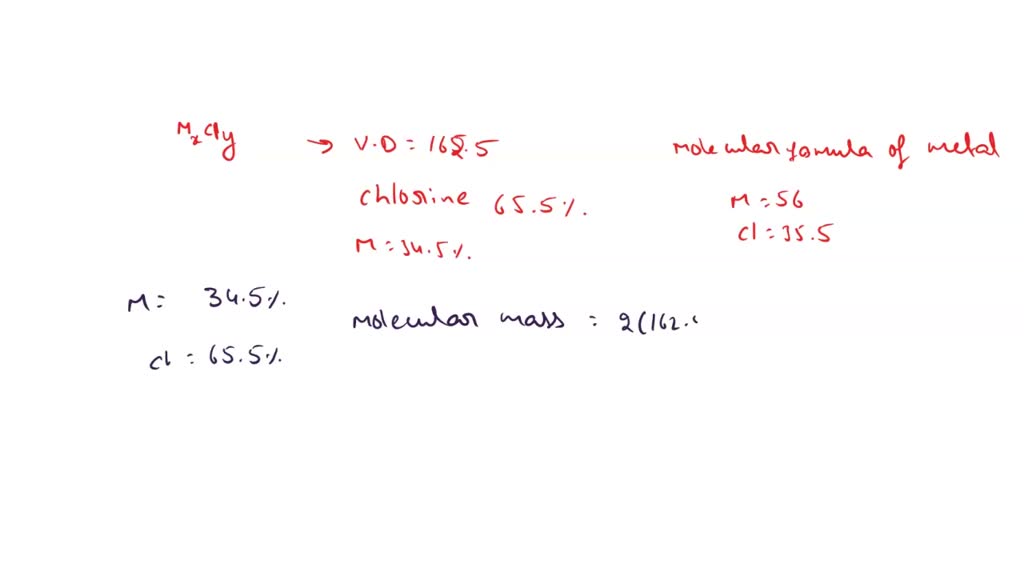 MxCly → V.D = 162.5
chlorine 65.5%.
M = 34.5%.
Molecular formula of metal
M = 56
Cl = 35.5
M = 34.5%.
Cl = 65.5%.
Molecular mass = 2(162.